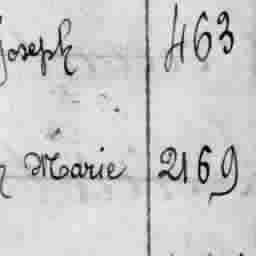 Joseph 463
Marie 2169